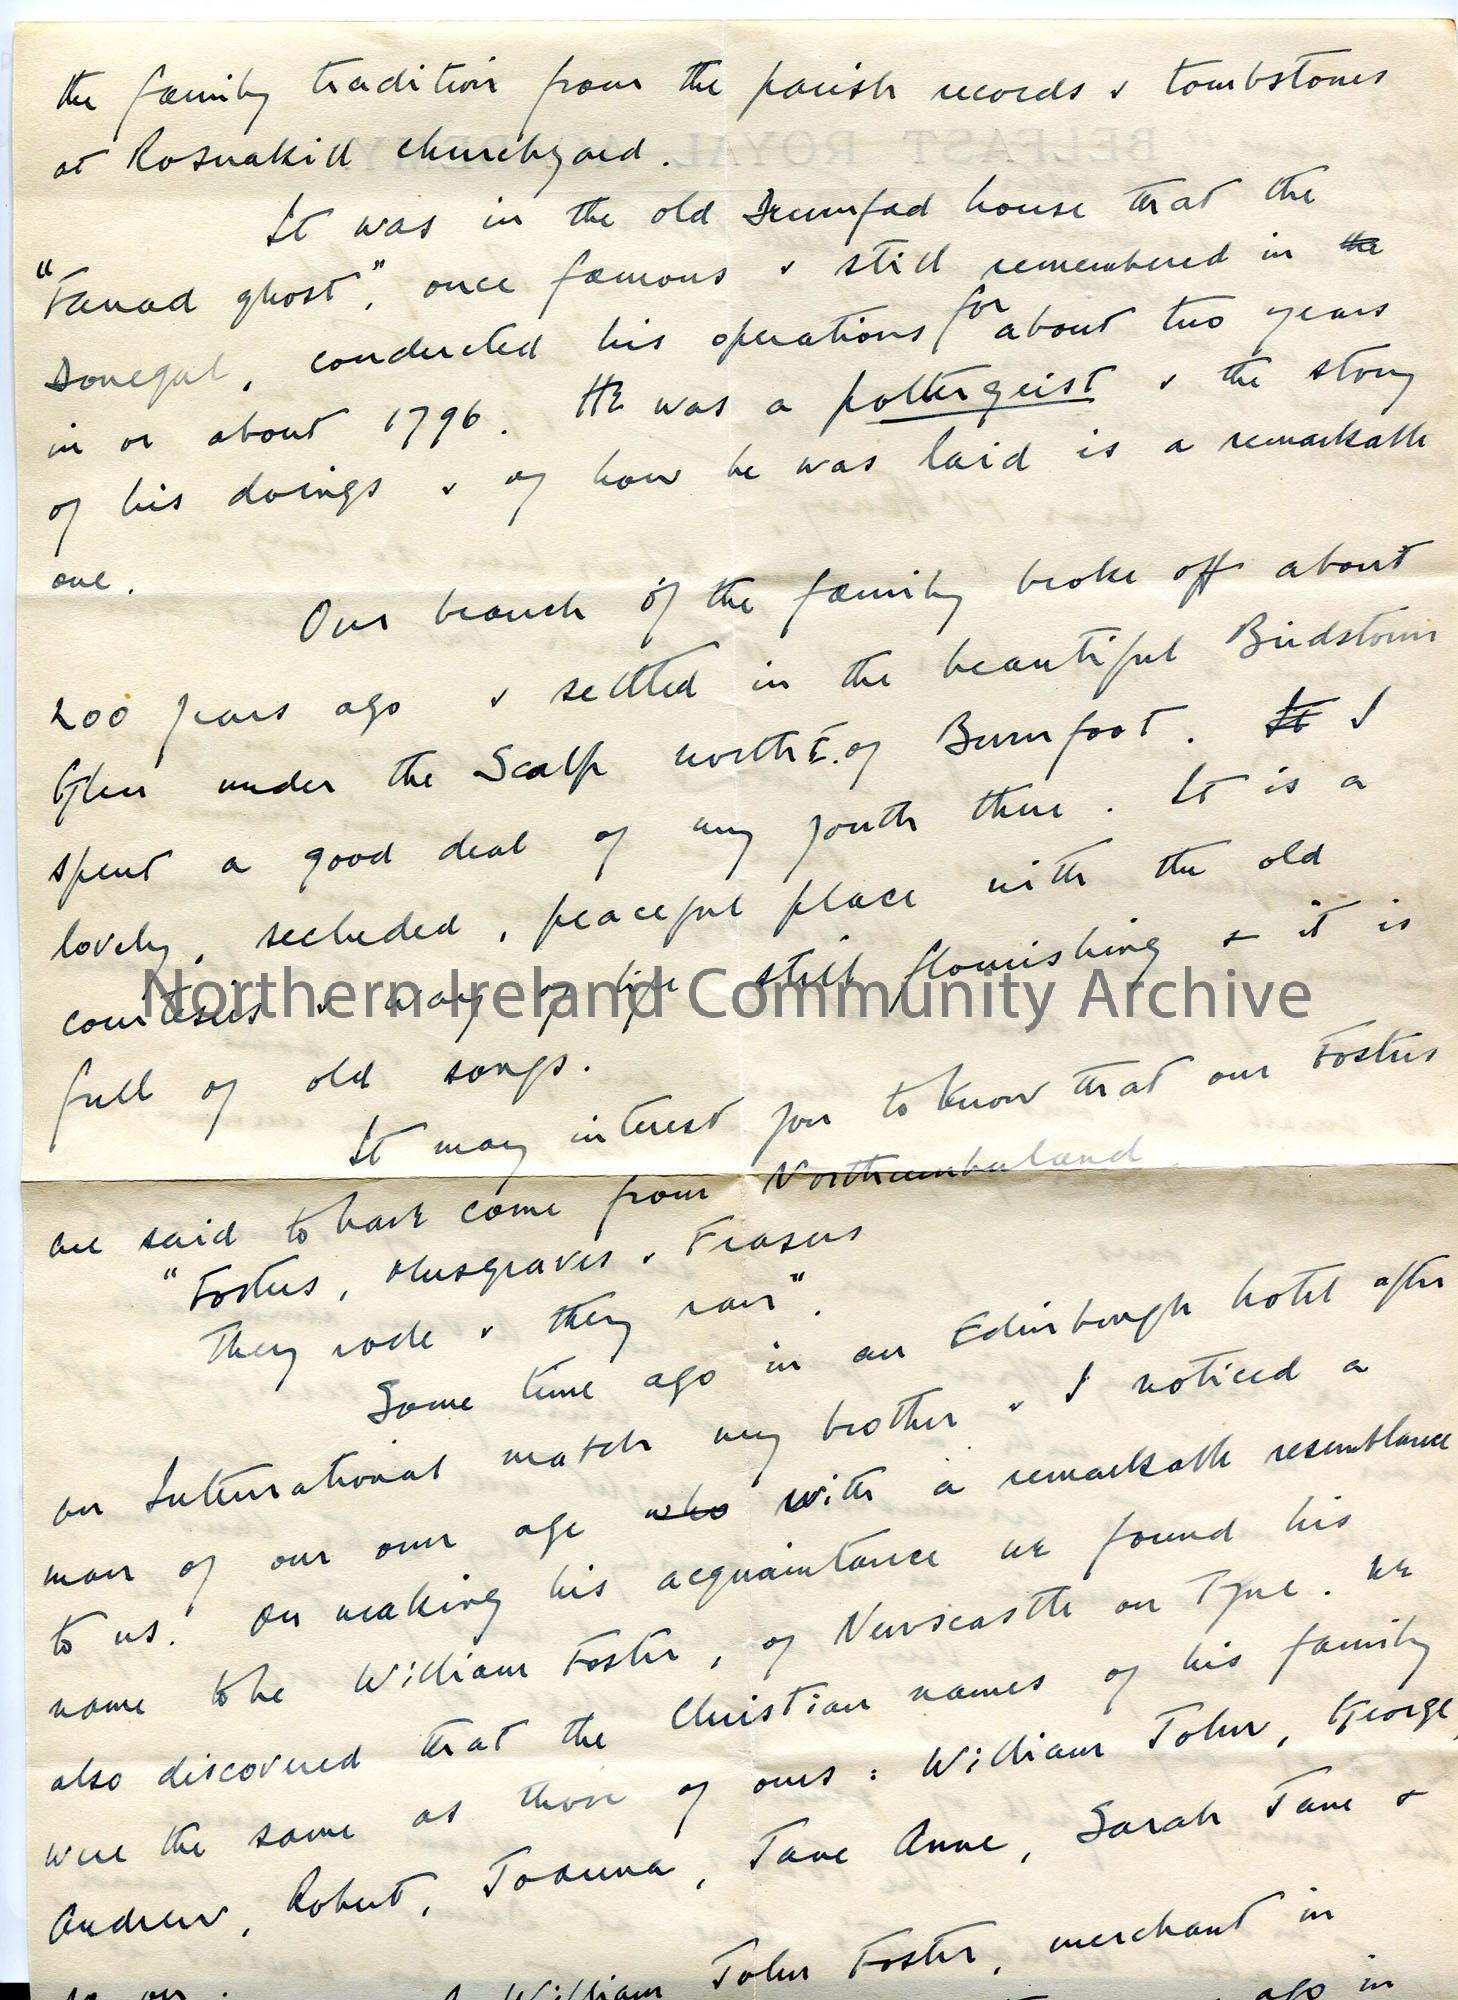 the family tradition from the parish records & tombstones
at Rosnakill churchyard.
It was in the old Drumfad house that the
"Fanad ghost", once famous & still remembered in ~~the~~
Donegal, conducted his operations for about two years
in or about 1796. He was a poltergeist & the story
of his doings & of how he was laid is a remarkable
one.
Our branch of the family broke off about
200 years ago & settled in the beautiful Birdstown
Glen under the Scalp north E. of Burnfoot. ~~It~~ I
spent a good deal of my youth there. It is a
lovely, secluded, peaceful place with the old
courtesies & way of life still flourishing & it is
Northern Ireland Community Archive
full of old songs.
It may interest you to know that our Fosters
are said to have come from Northumberland.
"Fosters, Musgraves & Frasers
They rode & they ran".
Some time ago in an Edinburgh hotel after
an International match my brother & I noticed a
man of our own age ~~who~~ with a remarkable resemblance
to us. On making his acquaintance we found his
name to be William Foster, of Newscastle on Tyne. We
also discovered that the Christian names of his family
were the same as those of ours: William John, George,
Andrew, Robert, Joanna, Jane Anne, Sarah Jane &
so on.
William John Foster, merchant in
ago in